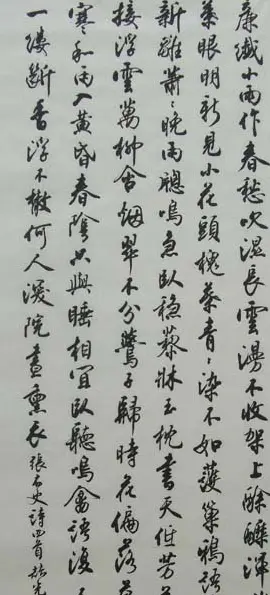 廉纖小雨作春愁吹濕長雲漫不收架上酴醾渾
葉眼明新見小花頭槐葉青々染不如護巢鴉語
新雛蕭々晚雨聽鳴急臥穩藜牀玉枕書天低芳
接浮雲萬柳含煙翠不分鷰子歸時花偏落
寒和雨入黃昏春陰只與睡相宜臥聽鳴禽語復
一縷斷香浮不散何人深院晝熏衣張右史詩四首